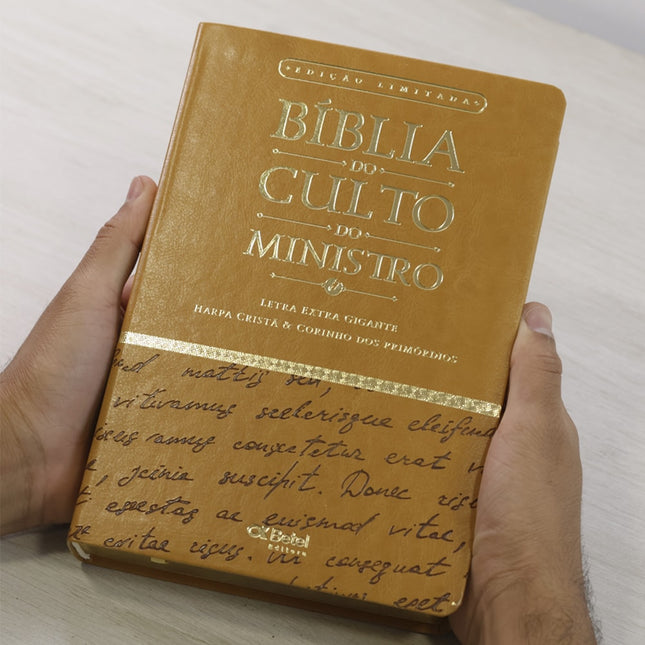 EDIÇÃO LIMITADA
BÍBLIA
DO
CULTO
DO
MINISTRO
LETRA EXTRA GIGANTE
HARPA CRISTÃ & CORINHO DOS PRIMÓRDIOS
mattis sed,
vivamus scelerisque eleifend
risus amus consectetur erat v
, lcinia suscipit. Donec risu
t egestas ac euismod vitae,
e vitae risus. consequat
eget
Betel
Editora